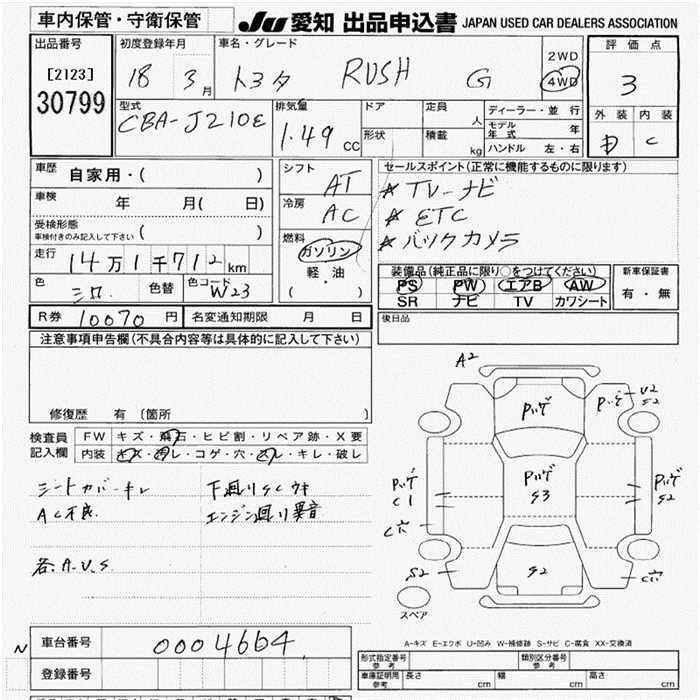 車内保管・守衛保管
JU 愛知 出品申込書 JAPAN USED CAR DEALERS ASSOCIATION
出品番号
[2123]
30799
初度登録年月
18 3月
車名・グレード
トヨタ RUSH G
2WD
4WD
評価点
3
外装 内装
D C
型式
CBA-J210E
排気量
1.49 cc
ドア
形状
定員 人
積載 kg
ディーラー・並行
モデル年式 年
ハンドル 左・右
車歴 自家用・( )
車検 年 月( 日)
受検形態
車検付きのみ記入して下さい ( )
走行 14万1千712km
色 シロ 色替 色コード W23
シフト AT
冷房 AC
燃料
ガソリン
軽・油
( )
セールスポイント(正常に機能するものに限ります)
☆TV-ナビ
☆ETC
☆バックカメラ
装備品(純正品に限り○をつけてください)
PS PW エアB AW
SR ナビ TV カワシート
新車保証書
有・無
R券 10070円 名変通知期限 月 日
後日品
注意事項申告欄(不具合内容等は具体的に記入して下さい)
修復歴 有〔箇所 〕
検査員記入欄
FW キズ・飛石・ヒビ割・リペア跡・X要
内装 キズ・汚レ・コゲ・穴・スレ・キレ・破レ
シートカバーキレ
AC不良
下廻りSCウキ
エンジン廻リ異音
若.A.U.S
A2
Pハゲ
Pハゲ
U2
S2
Pハゲ
C1
Pハゲ
S3
Pハゲ
S2
C穴
S2
S2
C穴
スペア
A-キズ E-エクボ U-凹み W-補修跡 S-サビ C-腐食 XX-交換済
N
車台番号 0004664
登録番号
形式指定番号 参考
類別区分番号 参考
車庫証明用 参考
長さ cm 幅 cm 高さ cm